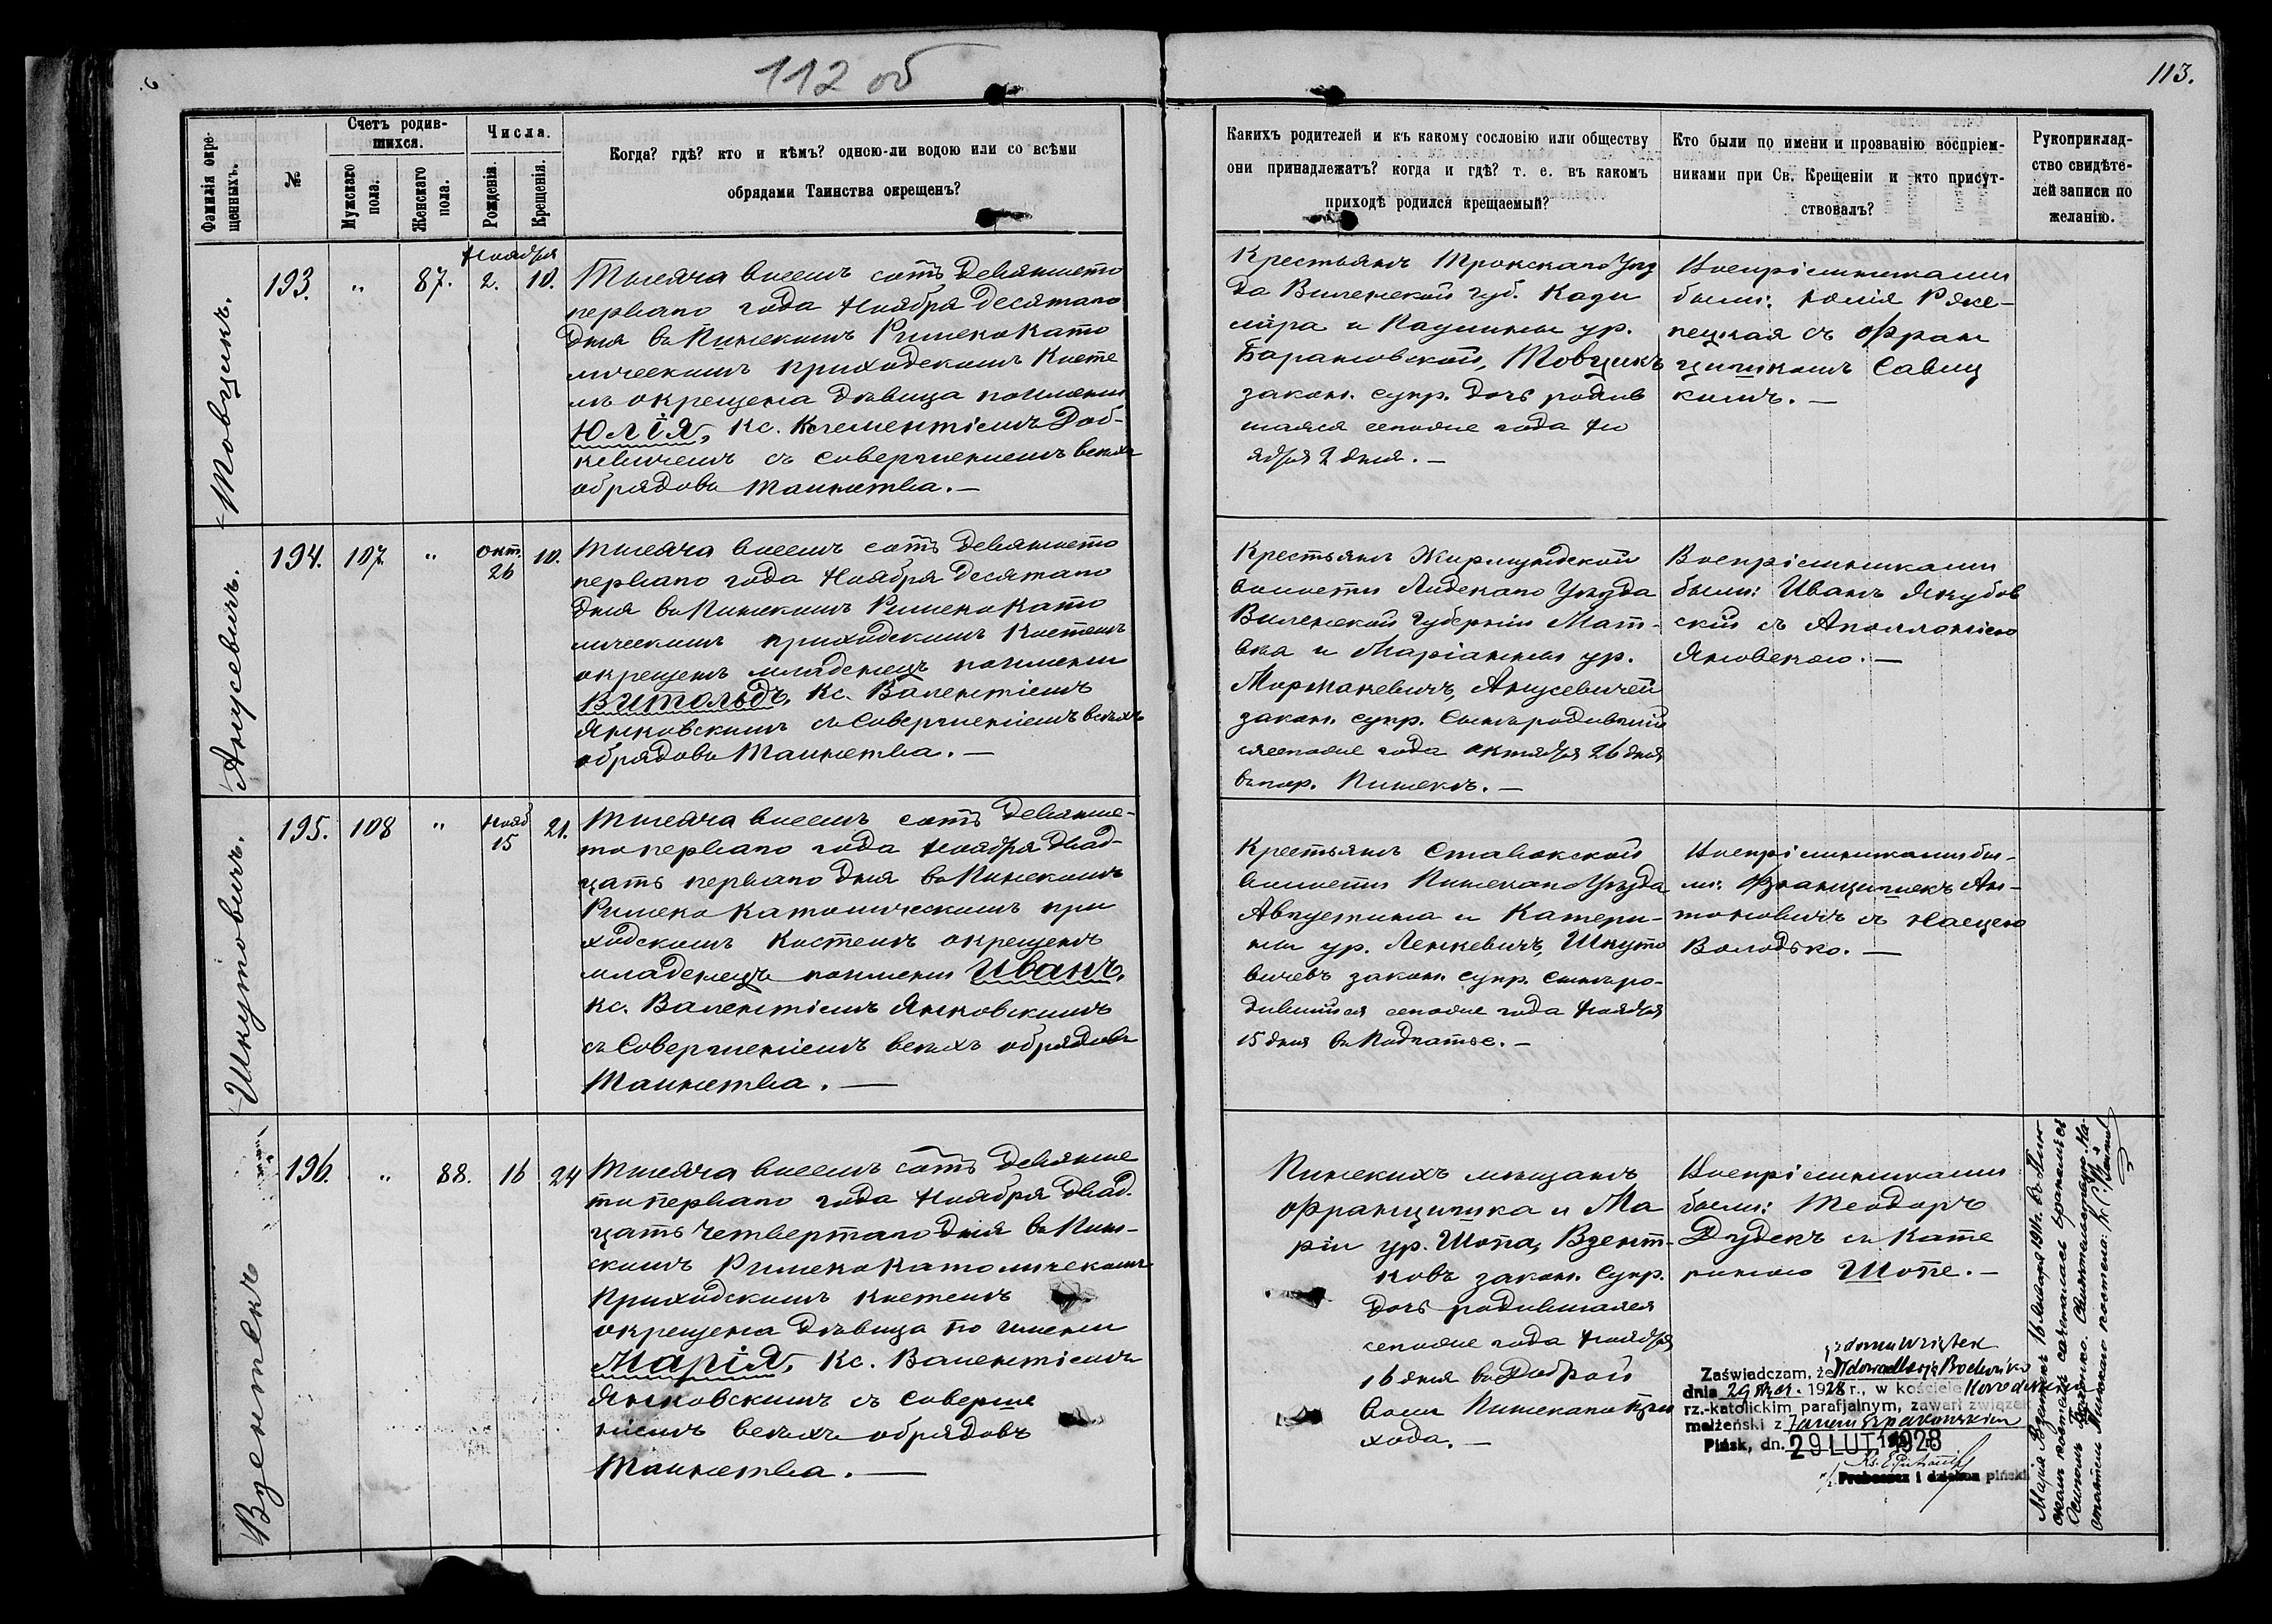 112 об
113.
Фамилія окре-
щенныхъ.
№
Счетъ родив-
шихся.
Мужскаго
пола.
Женскаго
пола.
Числа.
Рожденія.
Крещенія.
Когда? гдѣ? кто и кѣмъ? одною-ли водою или со всѣми
обрядами Таинства окрещенъ?
Какихъ родителей и къ какому сословію или обществу
они принадлежатъ? когда и гдѣ? т. е. въ какомъ
приходѣ родился крещаемый?
Кто были по имени и прозванію воспріем-
никами при Св. Крещеніи и кто присут-
ствовалъ?
Рукоприклад-
ство свидѣте-
лей записи по
желанію.
Товцикъ.
193.
"
87.
Ноября
2.
10.
Тысяча восемь сотъ девяносто
перваго года Ноября десятаго
дня въ Пинскомъ Римско Като
лическомъ приходскомъ Косте
лѣ окрещена дѣвица поимени
Юлія, Кс. Клементіемъ Доб-
кевичемъ съ совершениемъ всѣхъ
обрядовъ Таинства. —
Крестьянъ Трокскаго Уѣз
да Виленской Губ. Кази
міра и Паулины ур.
Барановской, Товцикъ
закон. супр. дочь родив
шаяся сегоже года Но
ября 2 дня. —
Воспріемниками
были: Юлія Ряже-
пецкая съ Фран
цишкомъ Савиц
кимъ. —
Анцсевичъ.
194.
107
"
Окт.
26
10.
Тысяча восемь сотъ девяносто
перваго года Ноября десятаго
дня въ Пинскомъ Римско Като
лическомъ приходскомъ Костелѣ
окрещенъ младенецъ поимени
Витольдъ, Кс. Валентіемъ
Янковскимъ съ совершеніемъ всѣхъ
обрядовъ Таинства. —
Крестьянъ Жирмундской
волости Лидскаго Уѣзда
Виленской Губерніи Мат-
вѣя и Маріанны ур.
закон. супр. сынъ родившій
ся сегоже года октября 26 дня
въ гор. Пинскѣ. —
Воспріемниками
были: Иванъ Якубов
скій съ Аполлоніею
Яновскою. —
Шкутовичъ.
195.
108
"
Нояб
15
21.
Тысяча восемь сотъ девяно-
сто перваго года Ноября двад-
цать перваго дня въ Пинскомъ
Римско Католическомъ при
ходскомъ Костелѣ окрещенъ
младенецъ поимени Иванъ,
Кс. Валентіемъ Янковскимъ
съ совершеніемъ всѣхъ обрядовъ
Таинства. —
Крестьянъ Ставокской
волости Пинскаго Уѣзда
Августина и Катери-
ны ур. Ленкевичъ, Шкуто
вичевъ закон. супр. сынъ ро-
дившійся сегоже года Ноября
15 дня въ Подгатье. —
Воспріемниками бы-
ли: Францишекъ Ан-
тоновичъ съ Настею
Володько. —
Взентекъ
196.
"
88.
16
24
Тысяча восемь сотъ девяно
сто перваго года Ноября двад.
цать четвертаго дня въ Пин-
скомъ Римско Католическомъ
Приходскомъ Костелѣ
окрещена дѣвица по имени
Марія, Кс. Валентіемъ
Янковскимъ съ соверше
ніемъ всѣхъ обрядовъ
Таинства. —
Пинскихъ мѣщанъ
Францишка и Ма
ріи ур. Шопа, Взент-
ковъ закон. супр.
дочь родившаяся
сегоже года Ноября
16 дня въ Доброй
воли Пинскаго При
хода. —
Воспріемниками
были: Теодоръ
Дудекъ съ Кате
риною Шопе. —
z domu Wziętek
Zaświadczam, że Wdowa Marja
dnia 29 1928 r., w kościele
rz.-katolickim parafjalnym, zawarł związek
małżeński z Janem Szpakowskim
Pińsk, dn. 29 LUT. 1928
Proboszcz i dziekan piński
Марія Взентекъ 16 Января 1911г. въ Пин-
скомъ костелѣ сочеталась бракомъ съ